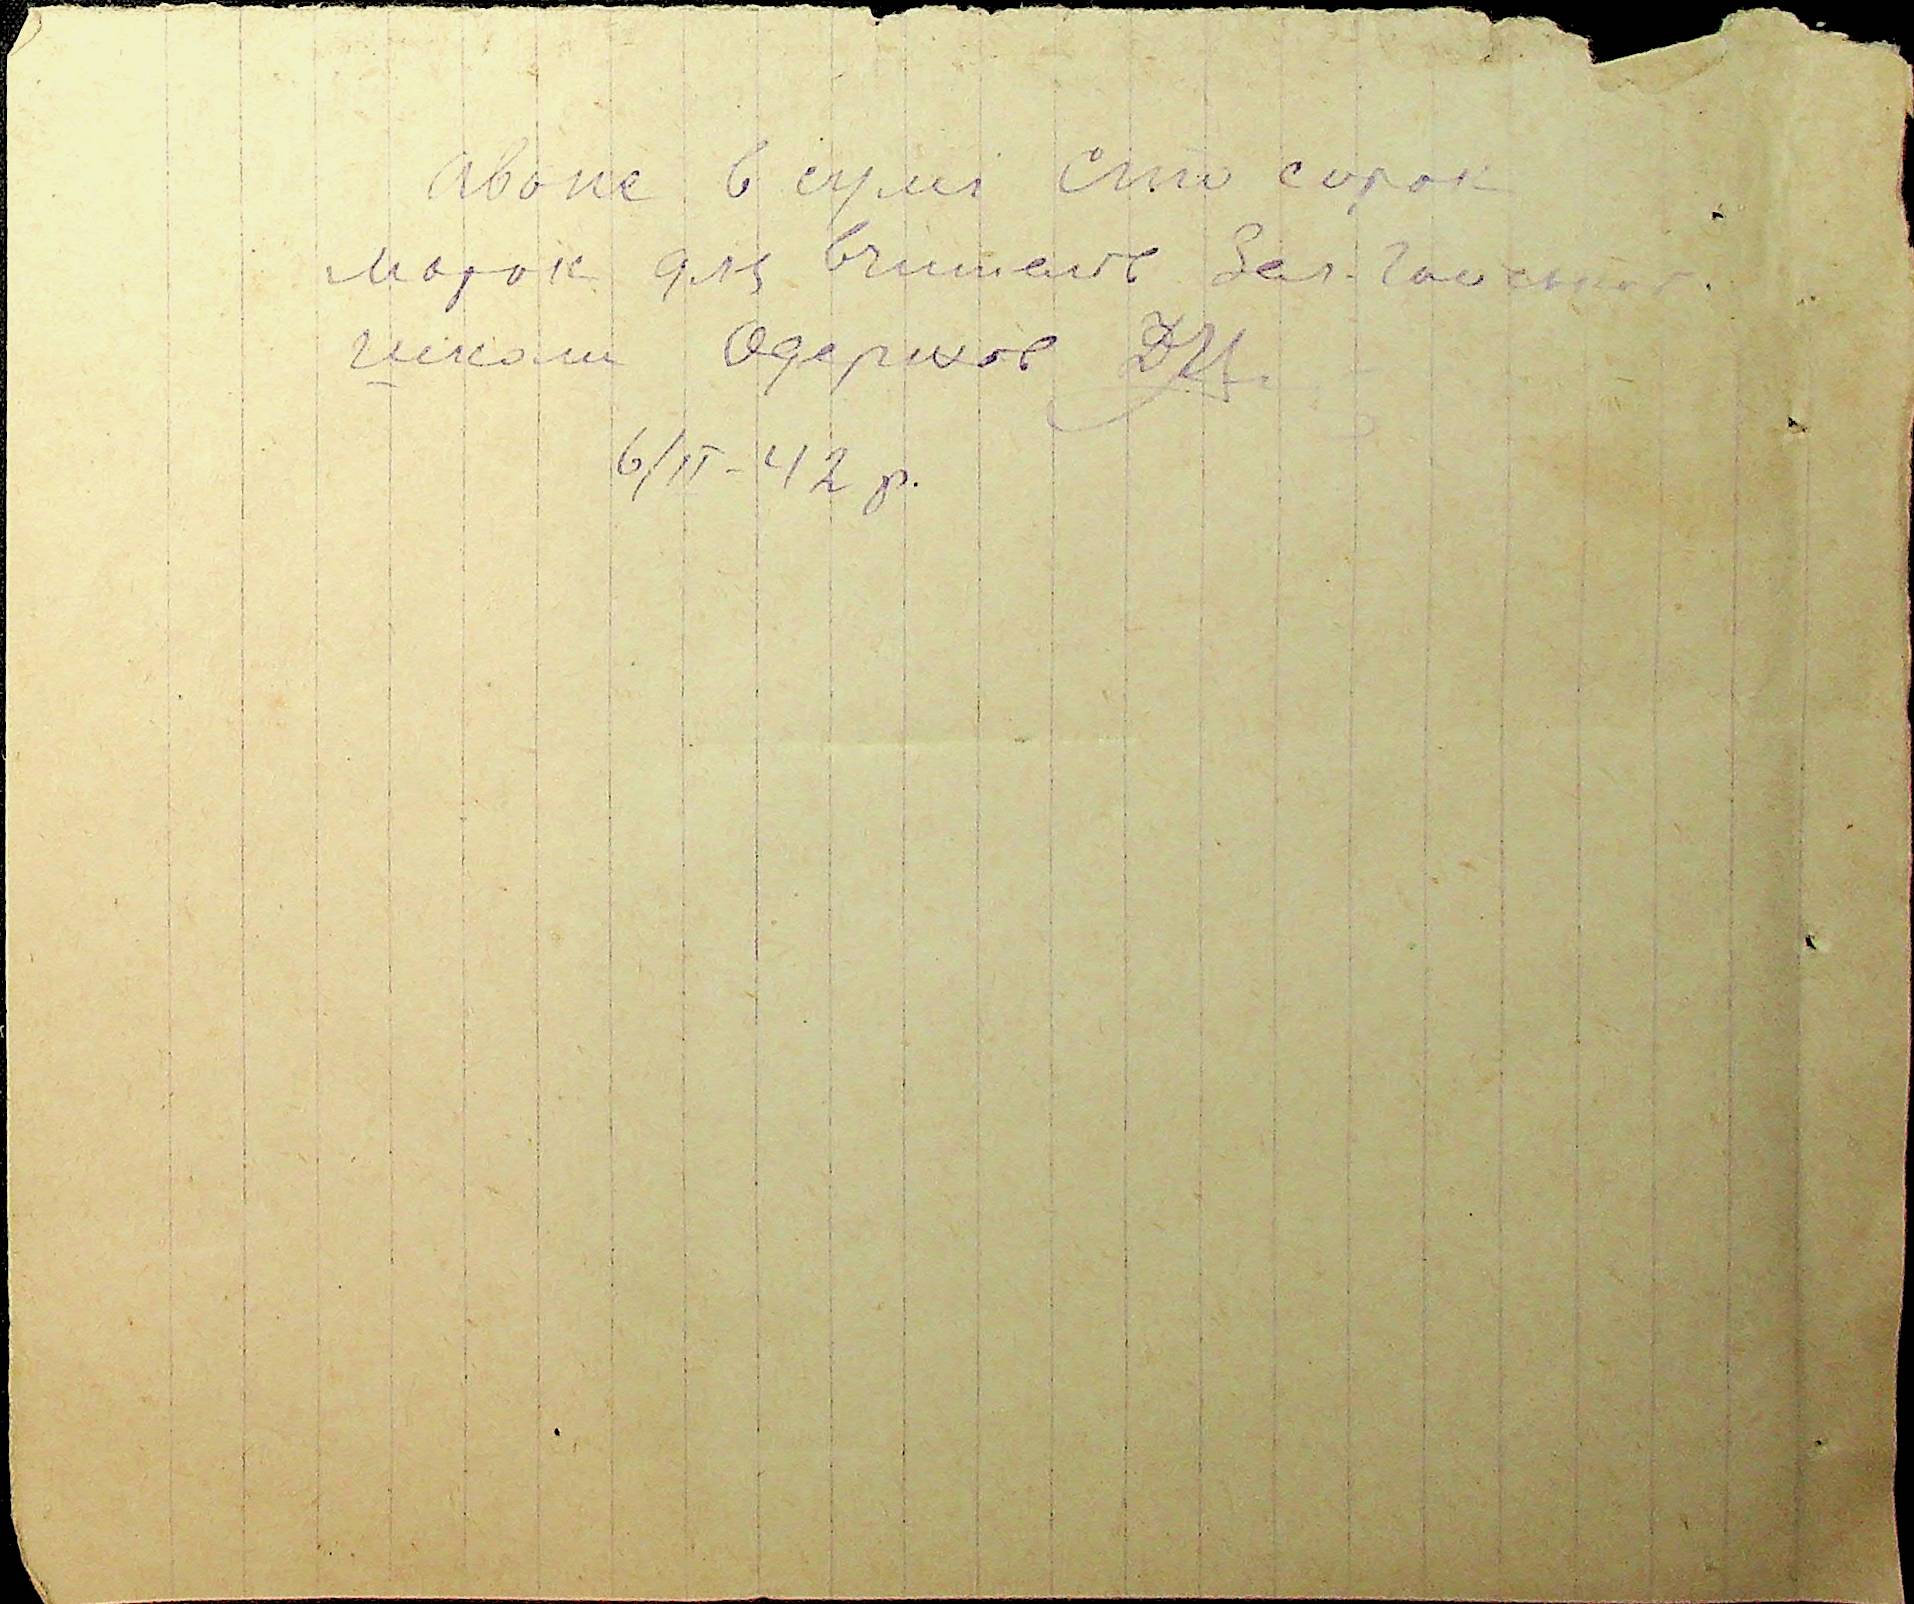 Авонс в сумі сто сорок
марок для вчителів Зел.-Гайської
школи Одержав
6/II-42 р.